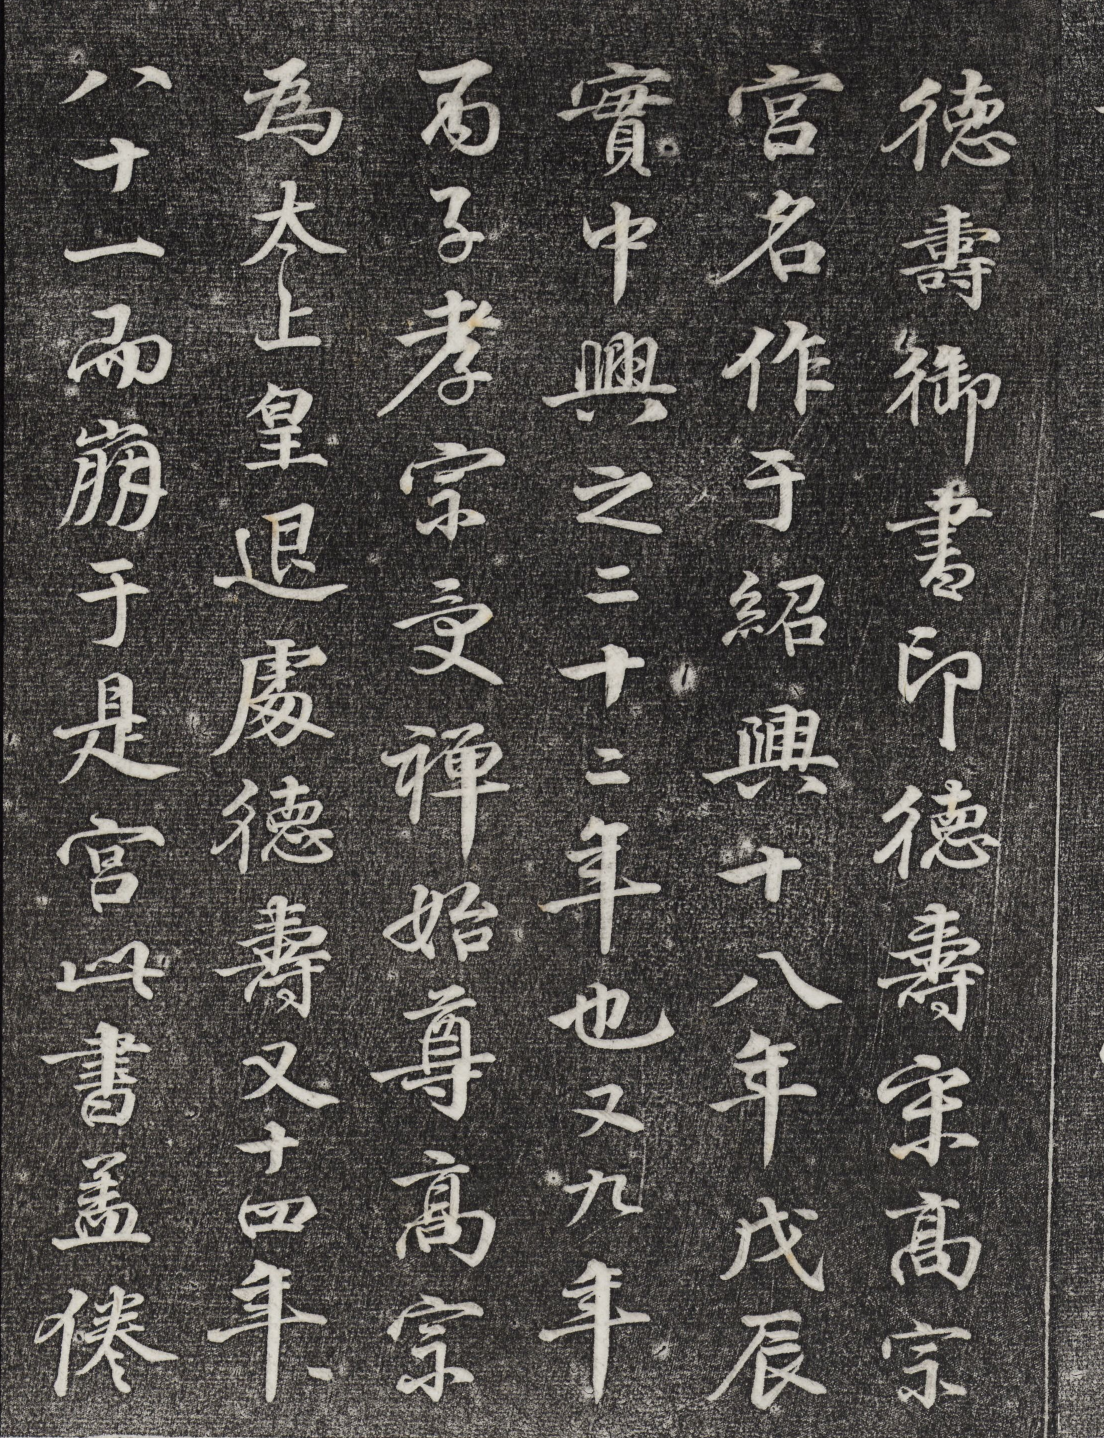 德壽御書印德壽宋高宗
宮名作于紹興十八年戊辰
實中興之二十二年也又九年
丙子孝宗受禪始尊高宗
為太上皇退處德壽又十四年
八十一而崩于是宮此書盖倦